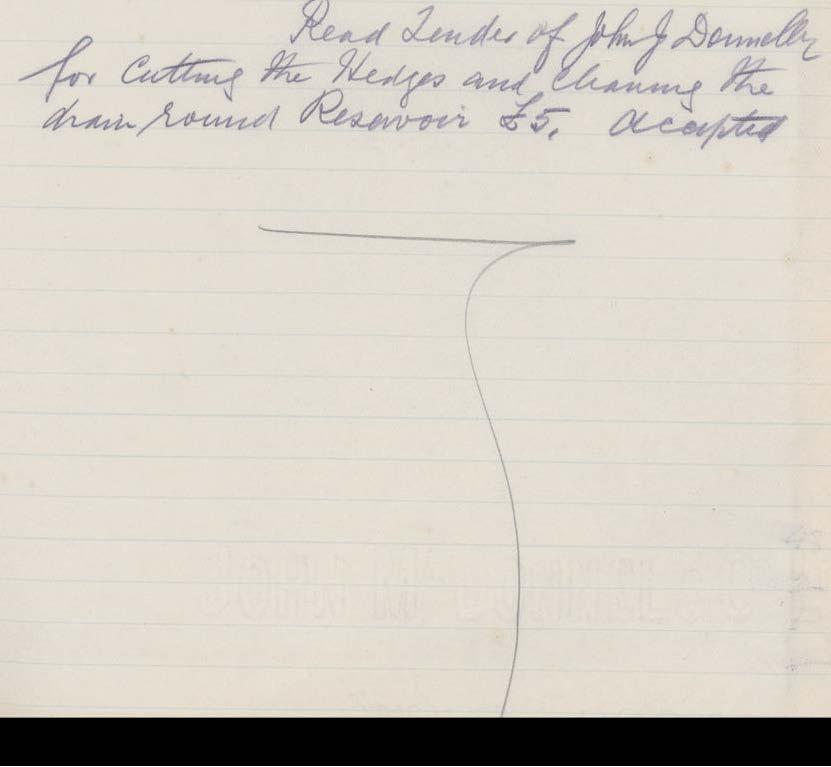 Read Tender of John J Donnelly
for Cutting the Hedges and Cleaning the
drain round Reservoir £5. Accepted